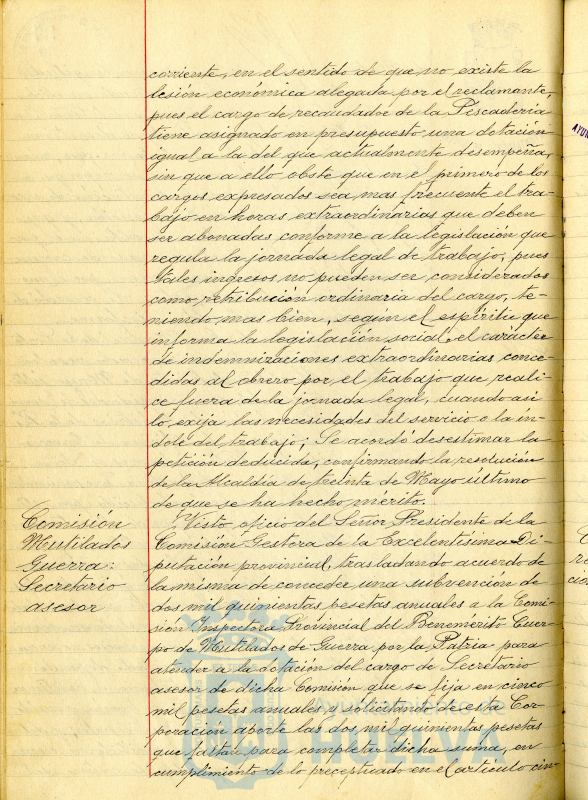 corriente, en el sentido de que no existe la
lesión económica alegada por el reclamante,
pues el cargo de recaudador de la Pescadería
tiene asignado en presupuesto una dotación
igual a la del que actualmente desempeña,
sin que a ello obste que en el primero de los
cargos expresados sea mas frecuente el tra-
bajo en horas extraordinarias que deben
ser abonadas conforme a la legislación que
regula la jornada legal de trabajo; pues
tales ingresos no pueden ser considerados
como retribución ordinaria del cargo, te-
niendo mas bien, según el espíritu que
informa la legislación social, el carácter
de indemnizaciones extraordinarias conce-
didas al obrero por el trabajo que reali-
ce fuera de la jornada legal, cuando así
lo exija las necesidades del servicio o la ín-
dole del trabajo; Se acordó desestimar la
petición deducida, confirmando la resolución
de la Alcaldía de treinta de Mayo último
de que se ha hecho mérito.
Comisión
Mutilados
Guerra:
Secretario
asesor
Visto, oficio del Señor Presidente de la
Comisión Gestora de la Excelentísima Di-
putación provincial, trasladando acuerdo de
la misma de conceder una subvención de
dos mil quinientas pesetas anuales a la Comi-
sión Inspectora Provincial del Benemérito Cuer-
po de Mutilados de Guerra por la Patria para
atender a la dotación del cargo de Secretario
asesor de dicha Comisión que se fija en cinco
mil pesetas anuales y solicitando de esta Cor-
poración aporte las dos mil quinientas pesetas
que faltan para completar dicha suma, en
cumplimiento de lo preceptuado en el artículo cin-